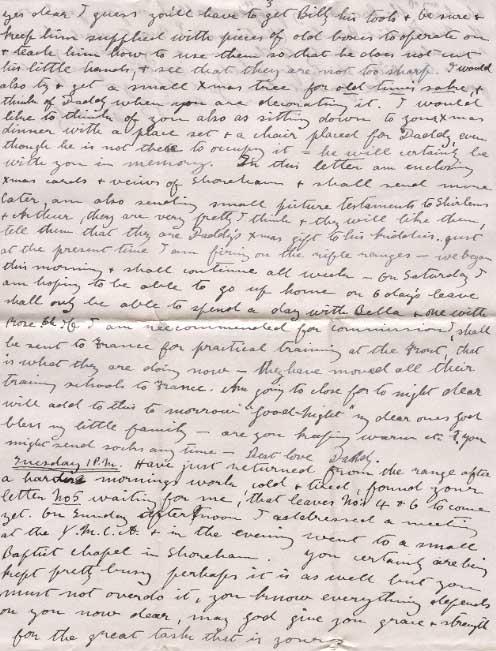 3
yes dear I guess you'll have to get Billy his tools & be sure &
keep him supplied with pieces of old boxes to operate on
& teach him how to use them so that he does not cut
his little hands, & see that they are not too sharp. I would
also try & get a small Xmas tree for old times sake, &
think of Daddy when you are decorating it. I would
like to think of you also as sitting down to your Xmas
dinner with a place set & a chair placed for Daddy even
though he is not there to occupy it – he will certainly be
with you in memory. In this letter am enclosing
Xmas cards & veiws of Shoreham & shall send more
later, am also sending small picture testaments to
& Arthur, they are very pretty I think & they will like them,
tell them that they are Daddy's Xmas gift to his kiddies. just
at the present time I am firing on the rifle ranges – we began
this morning & shall continue all week – On Saturday I
am hoping to be able to go up home on 6 days leave
shall only be able to spend a day with Bella & one with
Rose If I am reccommended for commission I shall
be sent to France for practical training at the Front, that
is what they are doing now – they have moved all their
training schools to France. Am going to close for to night dear
will add to this to morrow "Good-Night" my dear ones god
bless my little family – are you keeping warm etc? you
might send socks any time – Best love Daddy.
Tuesday 1 P.M. Have just returned from the range after
a hard mornings work cold & tired, found your
letter No 5 waiting for me, that leaves No's 4 & 6 to come
yet. On Sunday afternoon I addressed a meeting
at the Y.M.C.A. & in the evening went to a small
Baptist chapel in Shoreham. You certainly are being
kept pretty busy perhaps it is as well but you
must not overdo it, you know everything depends
on you now dear, may god give you grace & strength
for the great task that is yours